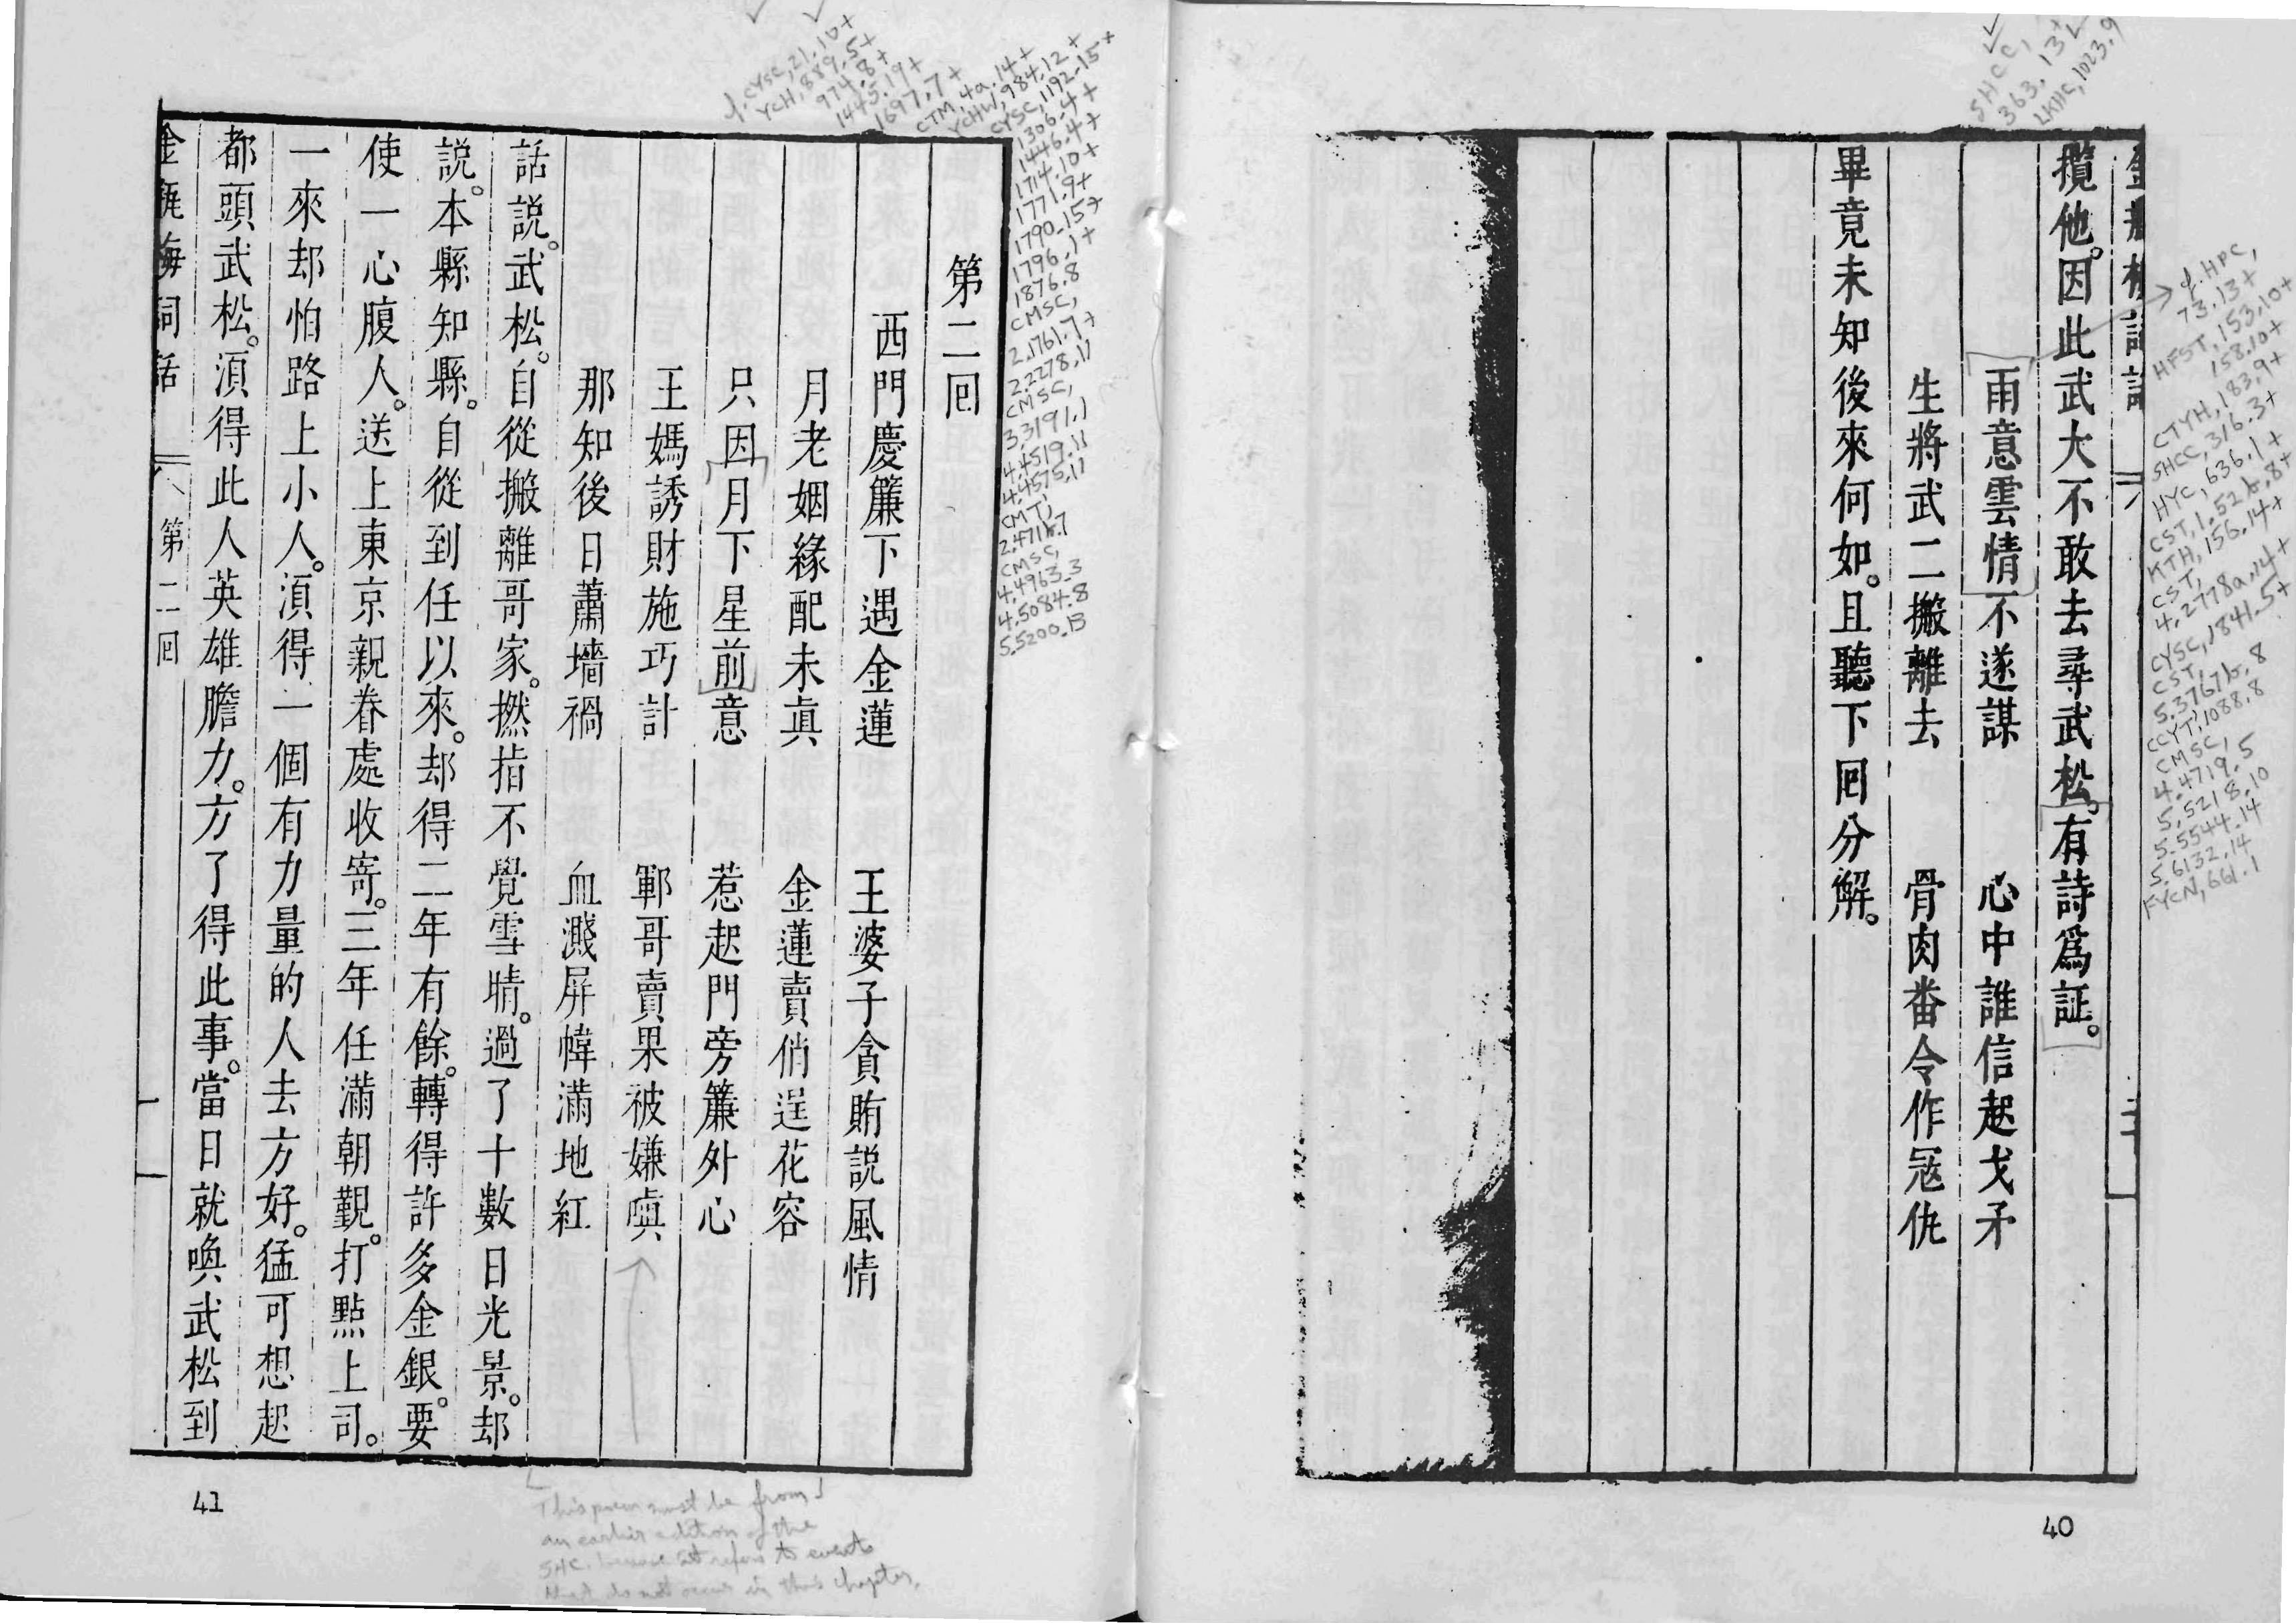 攬他。因此武大不敢去尋武松。有詩爲証。
雨意雲情不遂謀 心中誰信起戈矛
生將武二搬離去 骨肉番令作冦仇
畢竟未知後來何如。且聽下囘分解。
40
SHCC,
363.13+
cf. HPC,
73.13+
HFST, 153.10+
158.10+
CTYH, 183.9+
SHCC, 316.3+
HYC, 636.1+
CST, 1.52b.8+
KTH, 156.14+
CST,
4.2778a.14+
CYSC, 1841.5+
CST,
5.3767b.8
CCYT, 1088.8
CMSC,
4.4719.5
5.5218.10
5.5544.14
5.6132.14
FYCN, 661.1
第二囘
西門慶簾下遇金蓮 王婆子貪賄説風情
月老姻緣配未眞 金蓮賣俏逞花容
只因月下星前意 惹起門旁簾外心
王媽誘財施巧計 鄆哥賣果被嫌嗔
那知後日蕭墻禍 血濺屏幃滿地紅
話説。武松。自從搬離哥家。撚指不覺雪晴。過了十數日光景。却
説。本縣知縣。自從到任以來。却得二年有餘。轉得許多金銀。要
使一心腹人。送上東京親眷處收寄。三年任滿朝覲。打點上司。
一來却怕路上小人。湏得一個有力量的人去方好。猛可想起
都頭武松。湏得此人英雄膽力。方了得此事。當日就喚武松到
金瓶梅詞話 第二囘
41
cf. CYSC, 21.10+
YCH, 889.5+
974.8+
1445.19+
1697.7+
CTM, 4a.14+
YCHW, 984.12+
CYSC, 1192.15+
1306.4+
1446.4+
1714.10+
1771.9+
1790.15+
1796.1+
1876.8
CMSC,
2.1761.7+
2.2278.11
CMSC,
3.3191.1
4.4519.11
4.4575.11
CMT,
2.471b.7
CMSC,
4.4963.3
4.5084.8
5.5200.13
This poem must be from
an earlier edition of the
SHC. because it refers to events
that do not occur in this chapter.